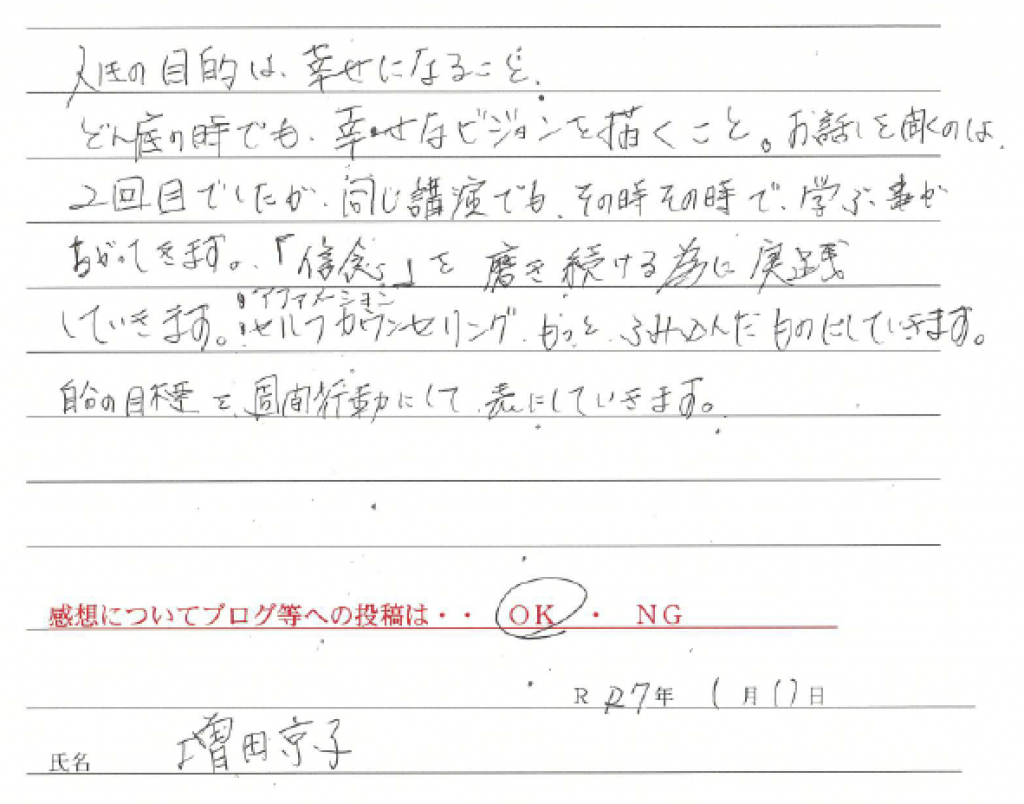 人生の目的は、幸せになること、
どん底の時でも、幸せなビジョンを描くこと。お話しを聞くのは、
2回目でしたが、同じ講演でも、その時その時で、学ぶ事が
ちがってきます。「信念」を磨き続ける為に実践
・アファメーション
していきます。・セルフカウンセリング、もっと、ふみ込んだものにしていきます。
自分の目標を、週間行動にして、表にしていきます。
感想についてブログ等への投稿は・・ OK ・ NG
R R7年 1月17日
氏名 増田京子